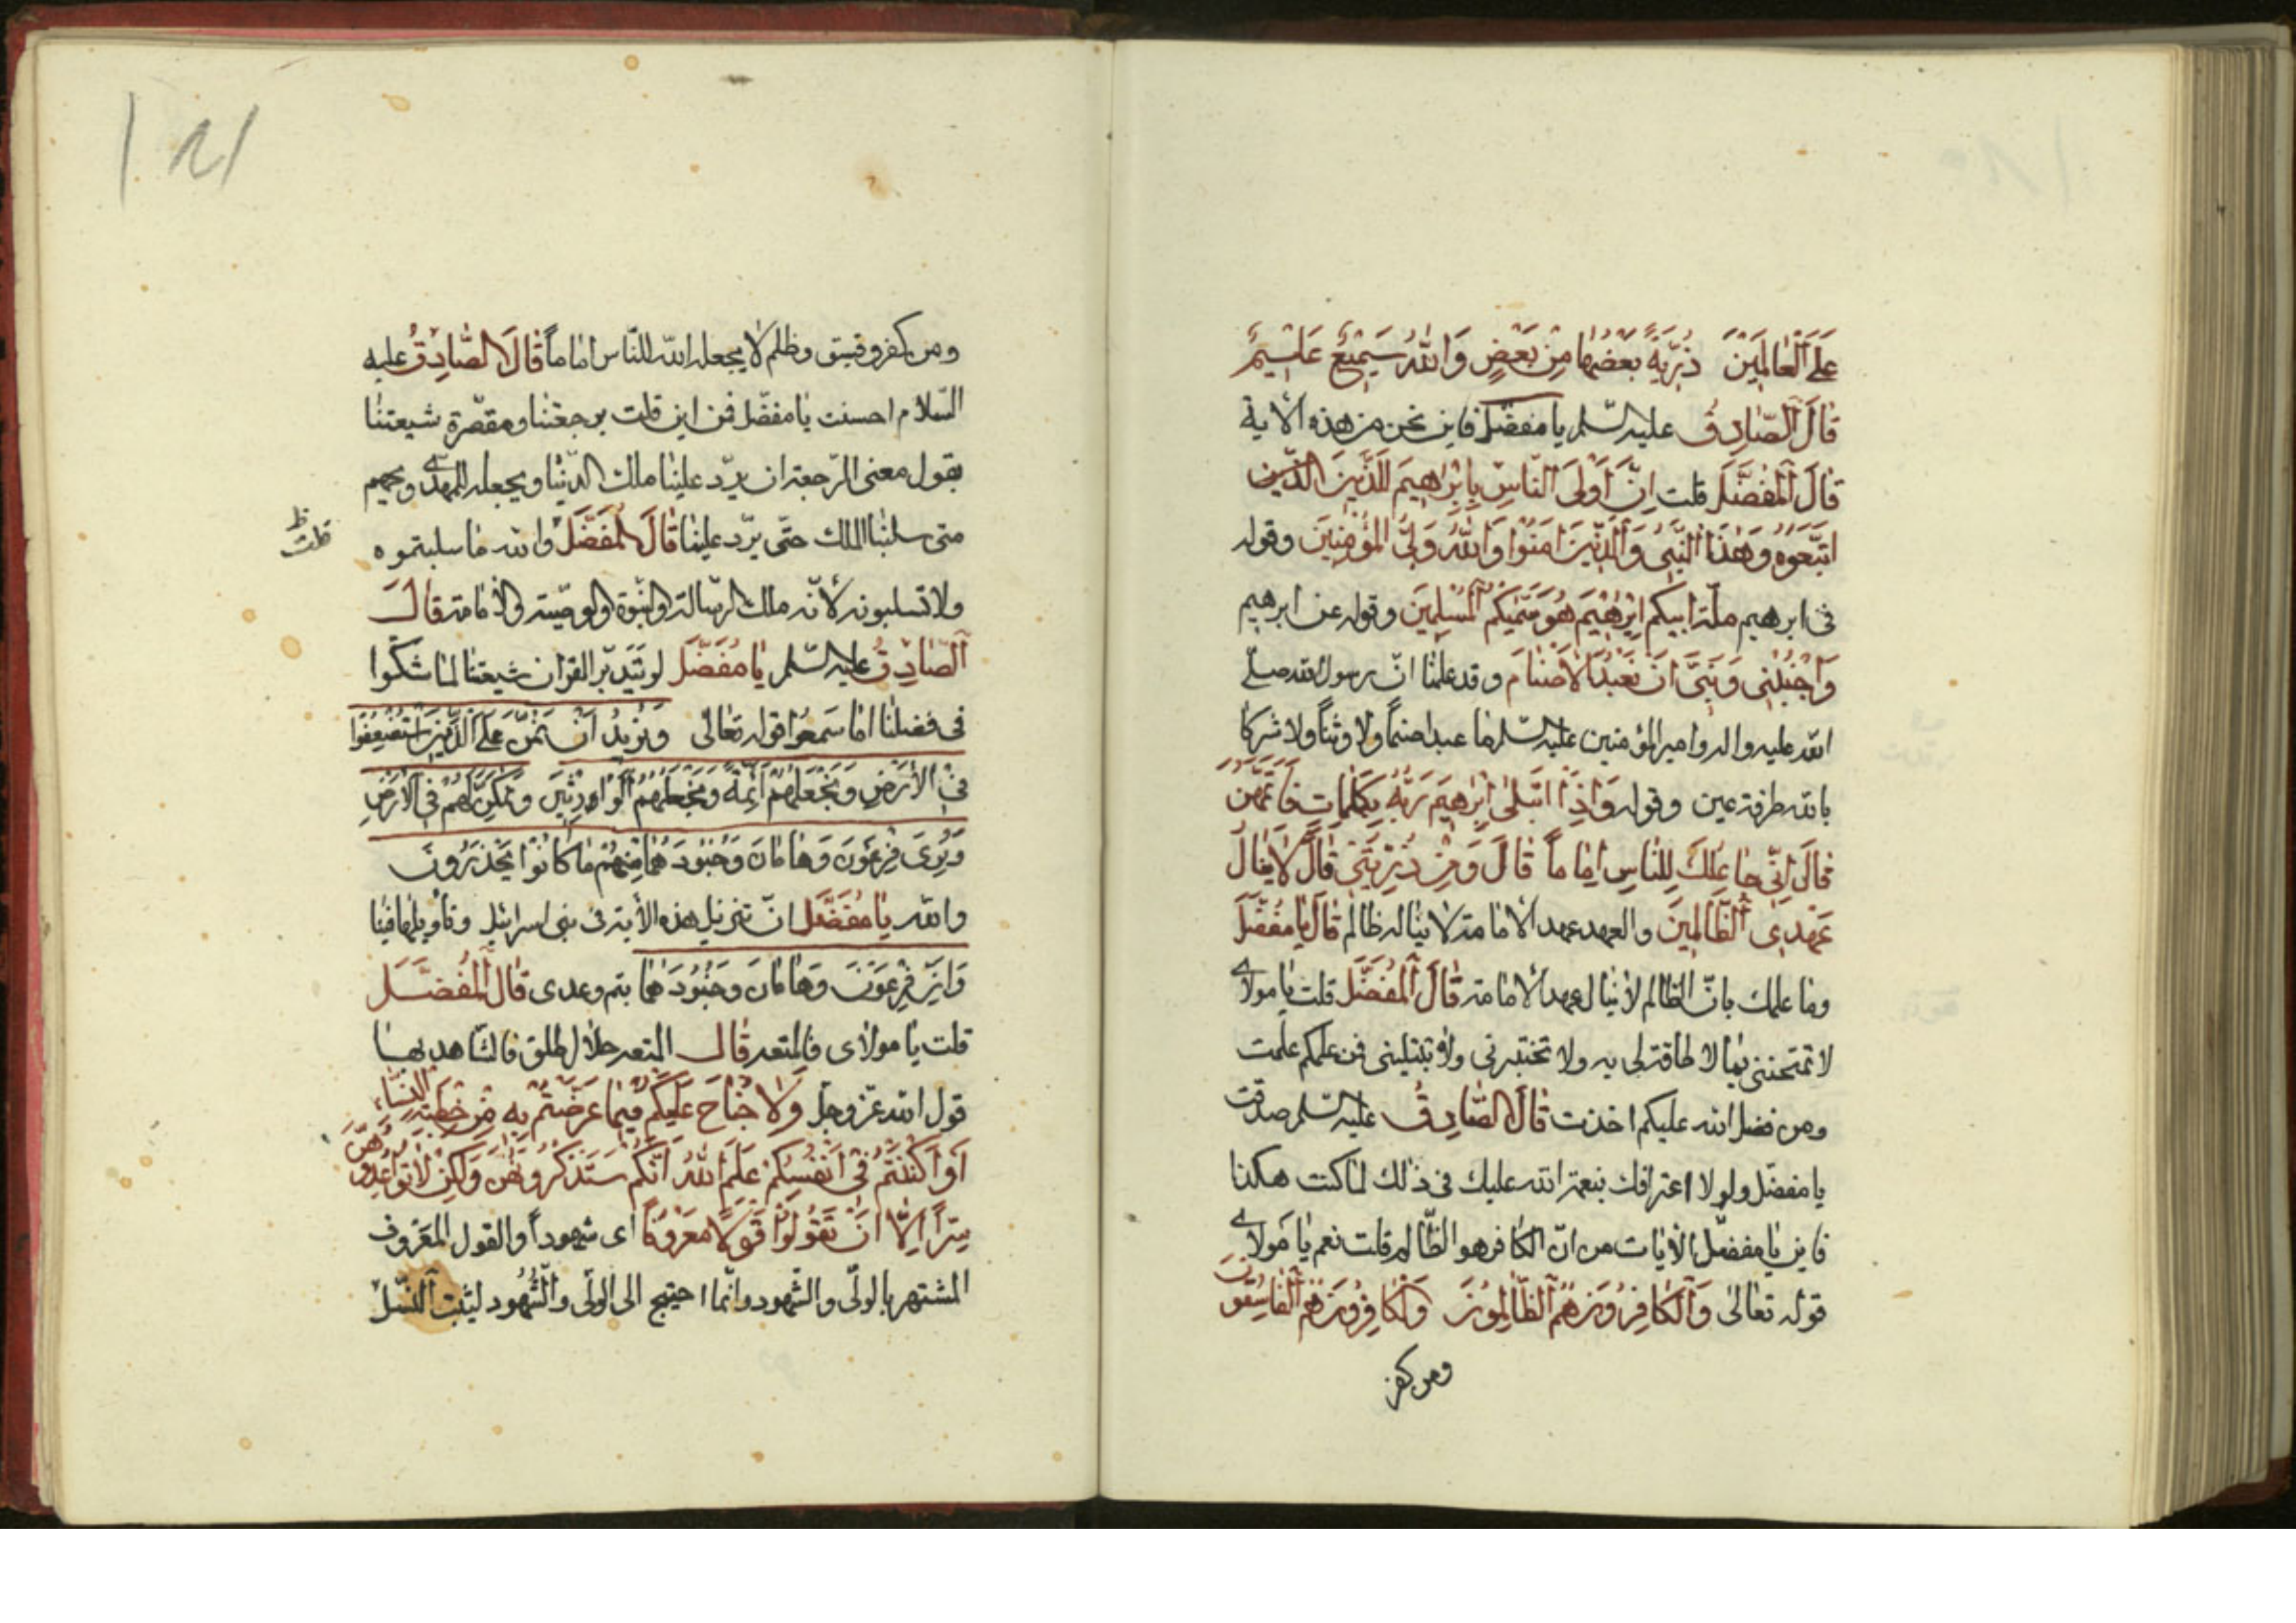 عَلَى الْعَالَمِينَ ذُرِّيَّةً بَعْضُهَا مِنْ بَعْضٍ وَاللهُ سَمِيعٌ عَلِيمٌ
قَالَ الصَّادِقُ عليه السّلم يا مفضّل فاين نحن من هذه الاية
قَالَ الْمُفَضَّلُ قلت اِنَّ اَوْلَى النَّاسِ بِاِبْرَاهِيمَ لَلَّذِينَ الذين
اتَّبَعُوهُ وَهٰذَا النَّبِىُّ وَالَّذِينَ اٰمَنُوا وَاللهُ وَلِىُّ الْمُؤْمِنِينَ وقوله
فى ابرهيم ملّة ابيكم اِبْرٰهِيمَ هُوَ سَمّٰيكُمُ الْمُسْلِمِينَ وقوله عن ابرهيم
وَاجْنُبْنِى وَبَنِىَّ اَنْ نَعْبُدَ الْاَصْنَامَ وقد علمنا انّ رسول الله صلى
الله عليه واله وامير المؤمنين عليه السّلم ما عبدا صنماً ولا وثناً ولا شركا
بالله طرفة عين وقوله وَاِذِ ابْتَلٰى اِبْرٰهِيمَ رَبُّهُ بِكَلِمَاتٍ فَاَتَمَّهُنَّ
قَالَ اِنِّى جَاعِلُكَ لِلنَّاسِ اِمَاماً قَالَ وَمِنْ ذُرِّيَّتِى قَالَ لَا يَنَالُ
عَهْدِى الظَّالِمِينَ والعهد عهد الامامة لا يناله ظالم قَالَ يَا مُفَضَّلُ
وما علمك بانّ الظالم لا ينال عهد الامامة قَالَ الْمُفَضَّلُ قلت يا مولاى
لا تمتحننى بما لا طاقة لى به ولا تختبرنى ولا تبتلينى فمن علمكم علمت
ومن فضل الله عليكم اخذت قَالَ الصَّادِقُ عليه السّلم صدقت
يا مفضّل ولولا اعترافك بنعمة الله عليك فى ذلك لما كنت هكذا
فاين يا مفضّل الآيات من انّ الكافر هو الظّالم قلت نعم يا مولاى
قوله تعالى وَالْكَافِرُونَ هُمُ الظَّالِمُونَ وَالْكَافِرُونَ هُمُ الْفَاسِقُونَ
ومن كفر
ومن كفر وفسق وظلم لا يجعله الله للنّاس اماماً قَالَ الصَّادِقُ عليه
السّلام احسنت يا مفضّل فمن اين قلت برجعتنا ومقصّرة شيعتنا
يقول معنى الرّجعة ان يردّ علينا ملك الدّنيا ويجعله للمهدى ويحهم
متى سلبنا الملك حتّى يردّ علينا قَالَ الْمُفَضَّلُ والله ما سلبتموه
ظ
قلت
ولا تسلبونه لأنّه ملك الرسالة والنبوّة والوصيّة والأمامة قَالَ
الصَّادِقُ عليه السّلم يَا مُفَضَّلُ لو تَدَبَّر القران شيعتنا لما شكّوا
فى فضلنا اما سَمعُوا قوله تعالى وَنُرِيدُ اَنْ نَمُنَّ عَلَى الَّذِينَ اسْتُضْعِفُوا
فِى الْاَرْضِ وَنَجْعَلَهُمْ اَئِمَّةً وَنَجْعَلَهُمُ الْوَارِثِينَ وَنُمَكِّنَ لَهُمْ فِى الْاَرْضِ
وَنُرِىَ فِرْعَوْنَ وَهَامَانَ وَجُنُودَهُمَا مِنْهُمْ مَا كَانُوا يَحْذَرُونَ
والله يَا مُفَضَّلُ انّ تنزيل هذه الأية فى بنى اسرائيل وتأويلها فينا
وَاِنَّ فِرْعَوْنَ وَهَامَانَ وَجُنُودَهُمَا تيم وعدى قَالَ الْمُفَضَّلُ
قلت يا مولاى فالمتعة قَالَ المتعة حلال طلق فالشاهد بها
قول الله عزّ وجلّ وَلَا جُنَاحَ عَلَيْكُمْ فِيمَا عَرَّضْتُمْ بِهِ مِنْ خِطْبَةِ النِّسَاءِ
اَوْ اَكْنَنْتُمْ فِى اَنْفُسِكُمْ عَلِمَ اللهُ اَنَّكُمْ سَتَذْكُرُونَهُنَّ وَلٰكِنْ لَا تُوَاعِدُوهُنَّ
سِرّاً اِلَّا اَنْ تَقُولُوا قَوْلًا مَعْرُوفاً اى شهوداً والقول المعروف
المشتهر بالولّى والشّهود وانّما احتيج الى الولّى والشّهُود ليثبت النّسل